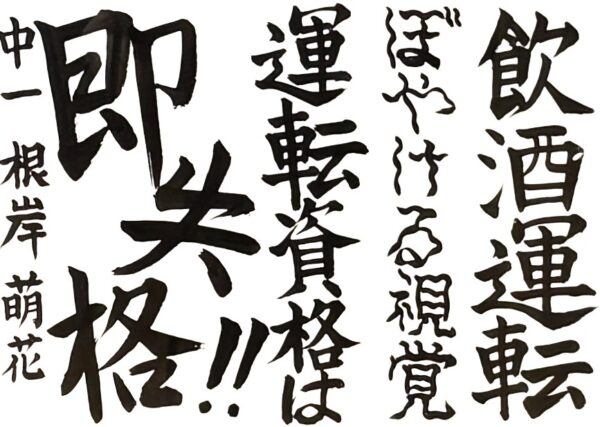 飲酒運転
ぼやける視覚
運転資格は
即失格!!
中一 根岸 萌花